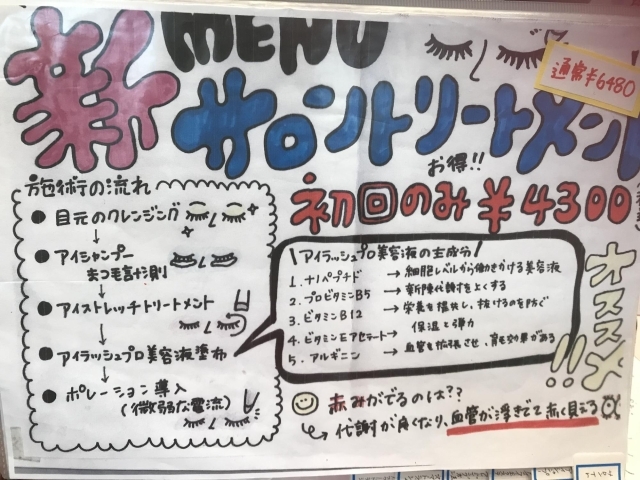 新MENU
サロントリートメント
通常¥6480
お得!!
初回のみ¥4300
オススメ!!
施術の流れ
● 目元のクレンジング
↓
● アイシャンプー
まつ毛計測
↓
● アイストレッチトリートメント
↓
● アイラッシュプロ美容液塗布
↓
● ポレーション導入
(微弱な電流)
\アイラッシュプロ美容液の主成分/
1. ナノペプチド → 細胞レベルから働きかける美容液
2. プロビタミンB5 → 新陳代謝をよくする
3. ビタミンB12 → 栄養を補伝し、抜けるのを防ぐ
4. ビタミンEアセテート→ 保温と弾力
5. アルギニン → 血管を拡張させ、育毛効果がある
赤みがでるのは??
代謝が良くなり、血管が浮きでて赤く見える